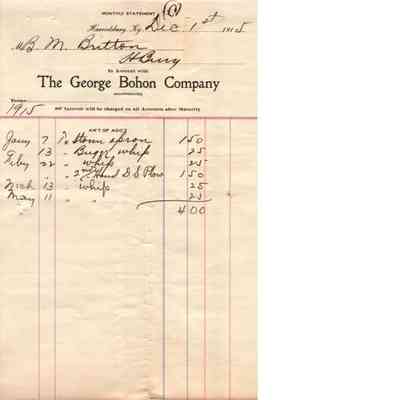 MONTHLY STATEMENT
Harrodsburg, Ky. Dec 1st 1915
M B. M. Britton
H Burg
In Account with
The George Bohon Company
Terms:
1915 Interest will be charged on all Accounts after Maturity
AM'T OF ACC'T
Jany 7 To Storm apron 1 50
" 13 " Buggy whip 25
Feby 22 " whip 25
" " " 2nd Hand D S Plow 1 50
Mch 13 " whip 25
May 11 " " 25
4 00